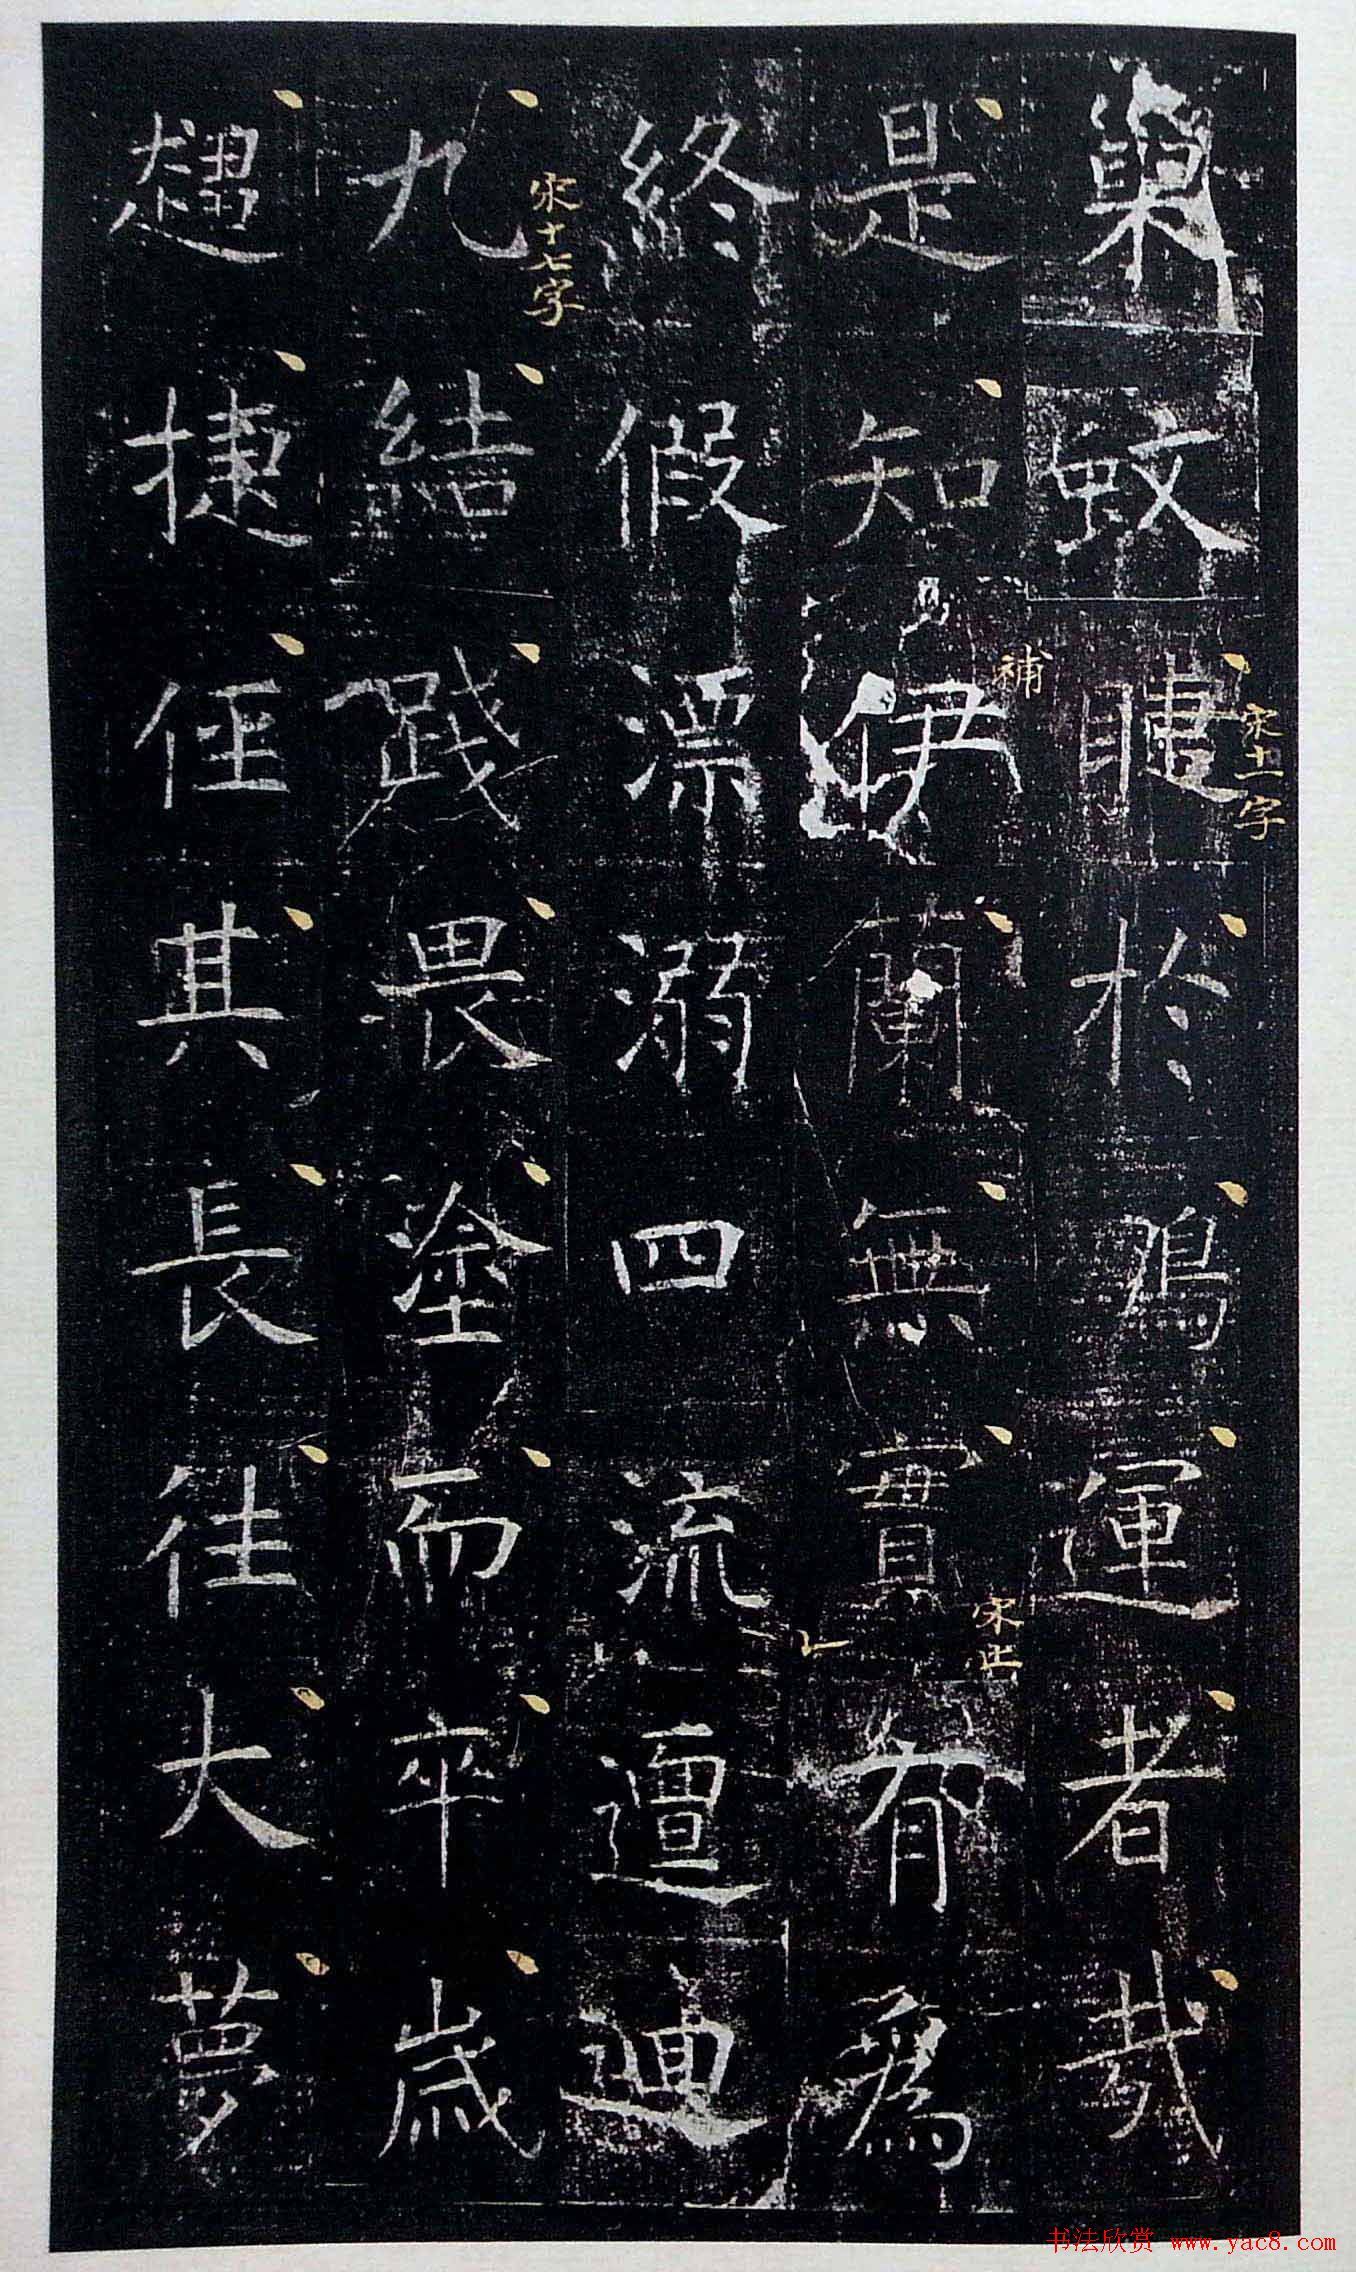 巢蚊睫於鴻運者哉
宋十一字
是知伊蘭無實有為
補
宋止
終假漂溺四流邅迴
九結踐畏塗而卒歲
宋十七字
趨捷徑其長往大夢
书法欣赏 www.yac8.com